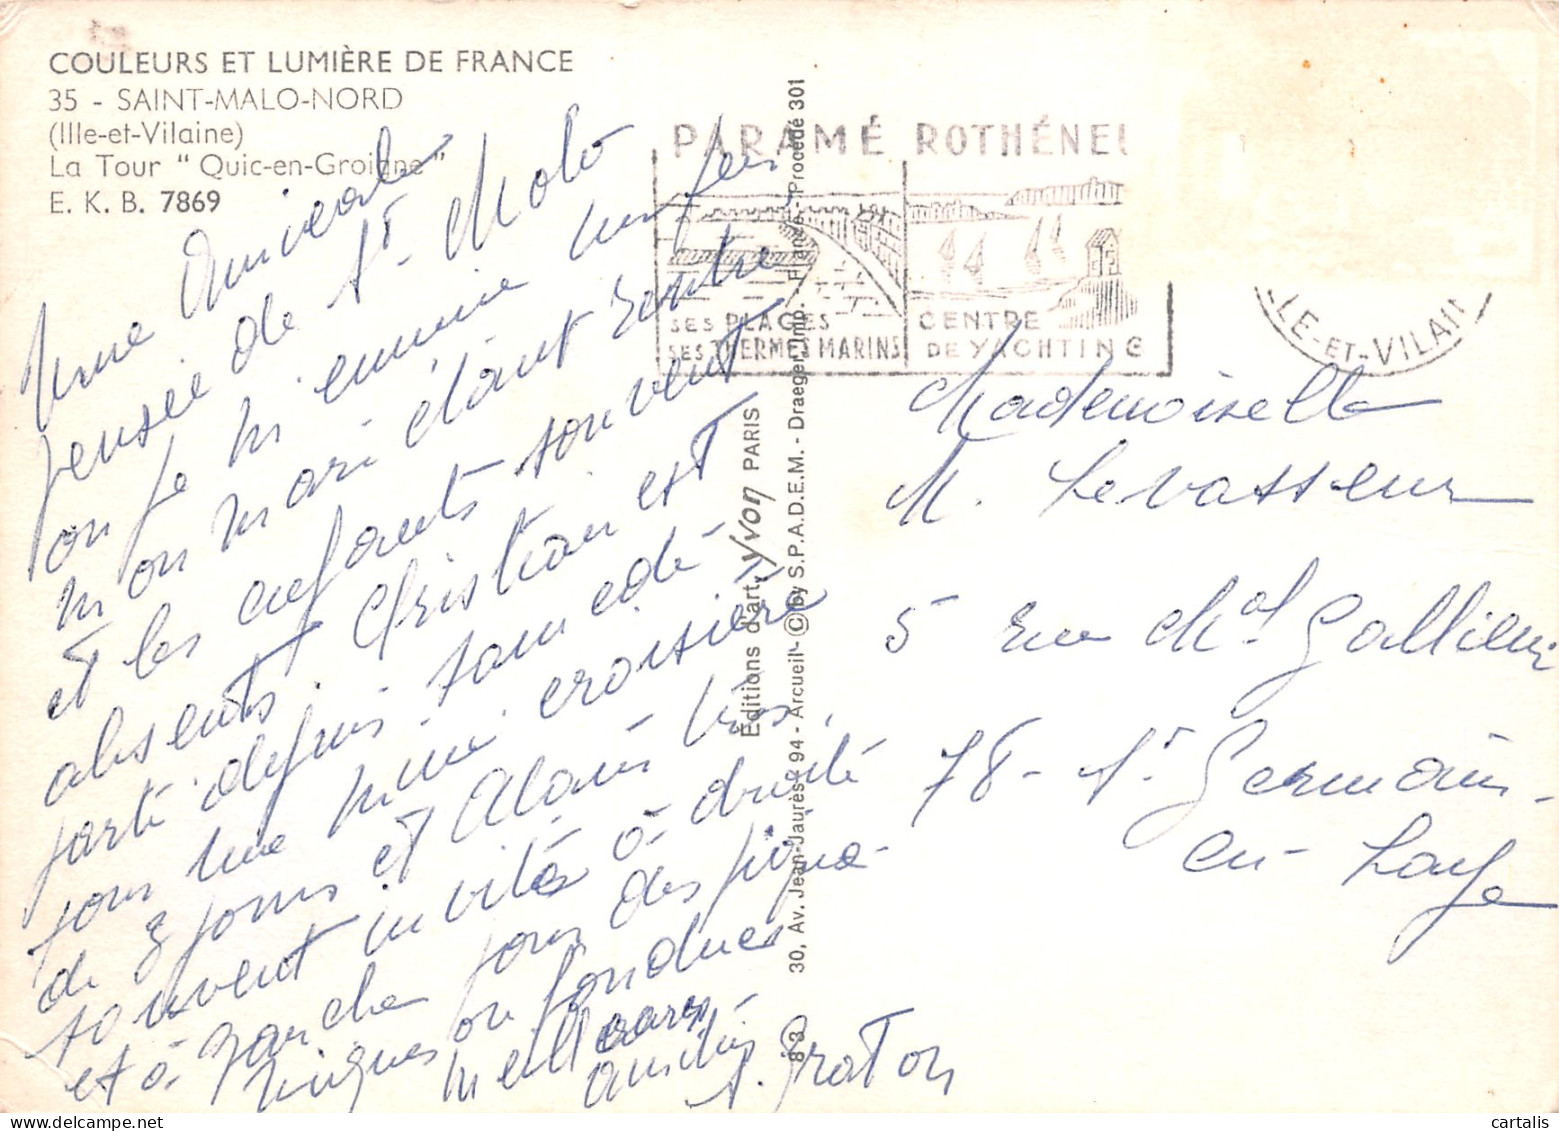 COULEURS ET LUMIÈRE DE FRANCE
35 - SAINT-MALO-NORD
(Ille-et-Vilaine)
La Tour " Quic-en-Groigne "
E. K. B. 7869
Une Amicale
pensée de St Malo
où je m'ennuie un peu,
mon mari étant rentré,
et les enfants souvent
absents. Christian est
parti depuis samedi
pour une mini croisière
de 3 jours et Alain très
souvent invité à droite
et à gauche pour des piqué-
niques ou fondues
meilleures
amitiés
A. Graton
PARAMÉ ROTHÉNEU
SES PLAGES
SES THERMES MARINS
CENTRE
DE YACHTING
LE-ET-VILAIN
Mademoiselle
M. Levasseur
5 rue Mal Gallieni
78 - St Germain-
en-Laye
Éditions d'art, Yvon PARIS
30, Av. Jean-Jaurès - 94 - Arcueil - © by S.P.A.D.E.M. - Draeger Imp. - France - Procédé 301
83
cartalis